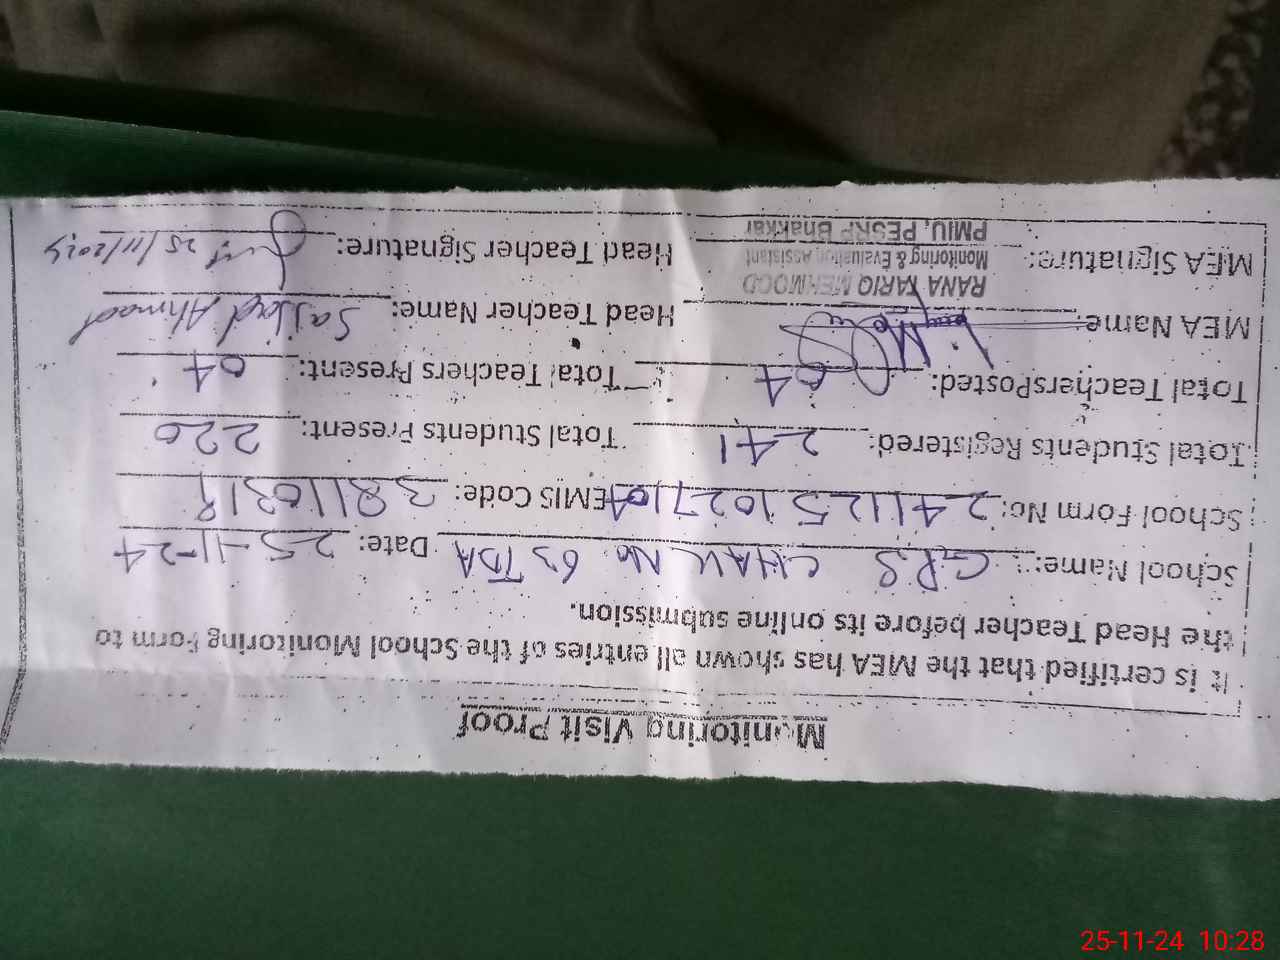 Monitoring Visit Proof
It is certified that the MEA has shown all entries of the School Monitoring Form to
the Head Teacher before its online submission.
School Name: GPS CHAK No 63 TDA Date: 25-11-24
School Form No: 24112510271 04 EMIS Code: 38110319
Total Students Registered: 241 Total Students Present: 220
Total TeachersPosted: 04 Total Teachers Present: 04
MEA Name: Head Teacher Name: Sajjad Ahmad
RANA TARIQ MEHMOOD
Monitoring & Evaluation Assistant
MEA Signature: Head Teacher Signature: 25/11/2024
PMIU, PESRP Bhakkar
25-11-24 10:28